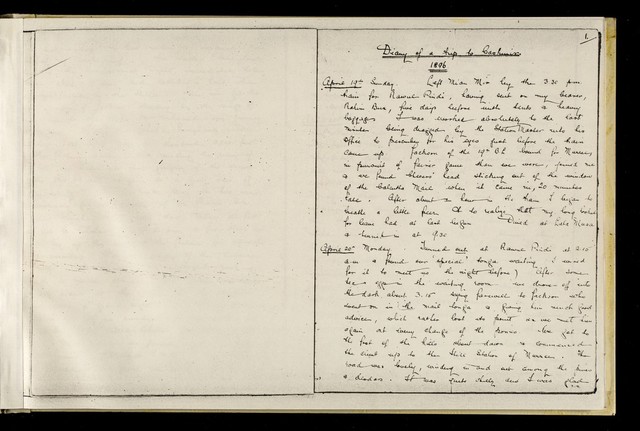 1.
Diary of a trip to Cashmir
1896
April 19th Sunday. Left Mian Mir by the 3.30 p.m.
train for Rawul Pindi, having sent on my bearer,
Rahim Bux, five days before with tents & heavy
baggage. I was worked absolutely to the last
minute being dragged by the Station Master into his
office to prescribe for his eyes just before the train
came up. Jackson of the 19th B.L. bound for Murree,
in pursuit of game than
& we found head sticking out of the window
of the Calcutta Mail when it came in, 20 minutes
late. After about an hour in the train I began to
breathe a little freer & to realize that my long
for leave had at last begun. Dined at Lala Musa
& turned in at 9.30
April 20th Monday. Turned out at Rawul Pindi at 2.15
a.m. & found our special tonga waiting (I wired
for it to meet us the night before) After some
tea & eggs in the waiting room we drove off into
the dark about 3.15 saying farewell to Jackson who
went on in the mail tonga & giving him much good
advice, which rather lost its point as we met him
again at every change of the ponies. We got to
the foot of the hills about dawn & commenced
the climb up to the Hill Station of Murree. The
road was lovely, winding in and out among the pines
& deodars. It was quite chilly and I was glad